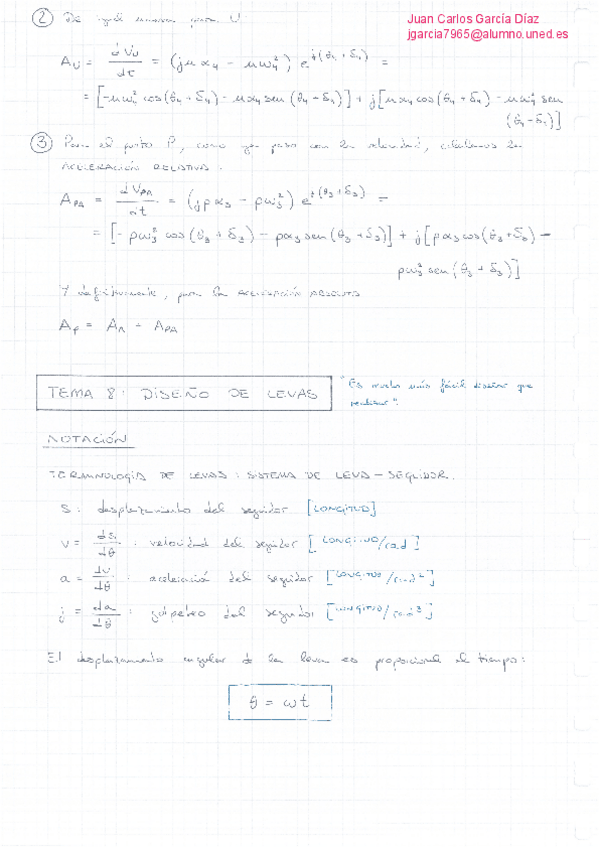 Juan Carlos García Díaz
jgarcia7965@alumno.uned.es
② De igual manera para U:
A_U = dV_U/dt = (j u α₄ − u ω₄²) e^{j(θ₄ + δ₄)} =
= [−u ω₄² cos(θ₄ + δ₄) − u α₄ sen(θ₄ + δ₄)] + j[u α₄ cos(θ₄ + δ₄) − u ω₄² sen
(θ₄ + δ₄)]
③ Para el punto P, como ya paso con la velocidad, calculamos la
ACELERACIÓN RELATIVA:
A_PA = dV_PA/dt = (j p α₃ − p ω₃²) e^{j(θ₃ + δ₃)} =
= [− p ω₃² cos(θ₃ + δ₃) − p α₃ sen(θ₃ + δ₃)] + j[p α₃ cos(θ₃ + δ₃) −
p ω₃² sen(θ₃ + δ₃)]
Y definitivamente, para la ACELERACIÓN ABSOLUTA
A_P = A_A + A_PA
TEMA 8: DISEÑO DE LEVAS
"Es mucho más fácil diseñar que
realizar".
NOTACIÓN
TERMINOLOGÍA DE LEVAS: SISTEMA DE LEVA – SEGUIDOR.
s: desplazamiento del seguidor [LONGITUD]
v = ds/dθ : velocidad del seguidor [LONGITUD/rad]
a = dv/dθ : aceleración del seguidor [LONGITUD/rad²]
j = da/dθ : golpeteo del seguidor [LONGITUD/rad³]
El desplazamiento angular de la leva es proporcional al tiempo:
θ = ωt